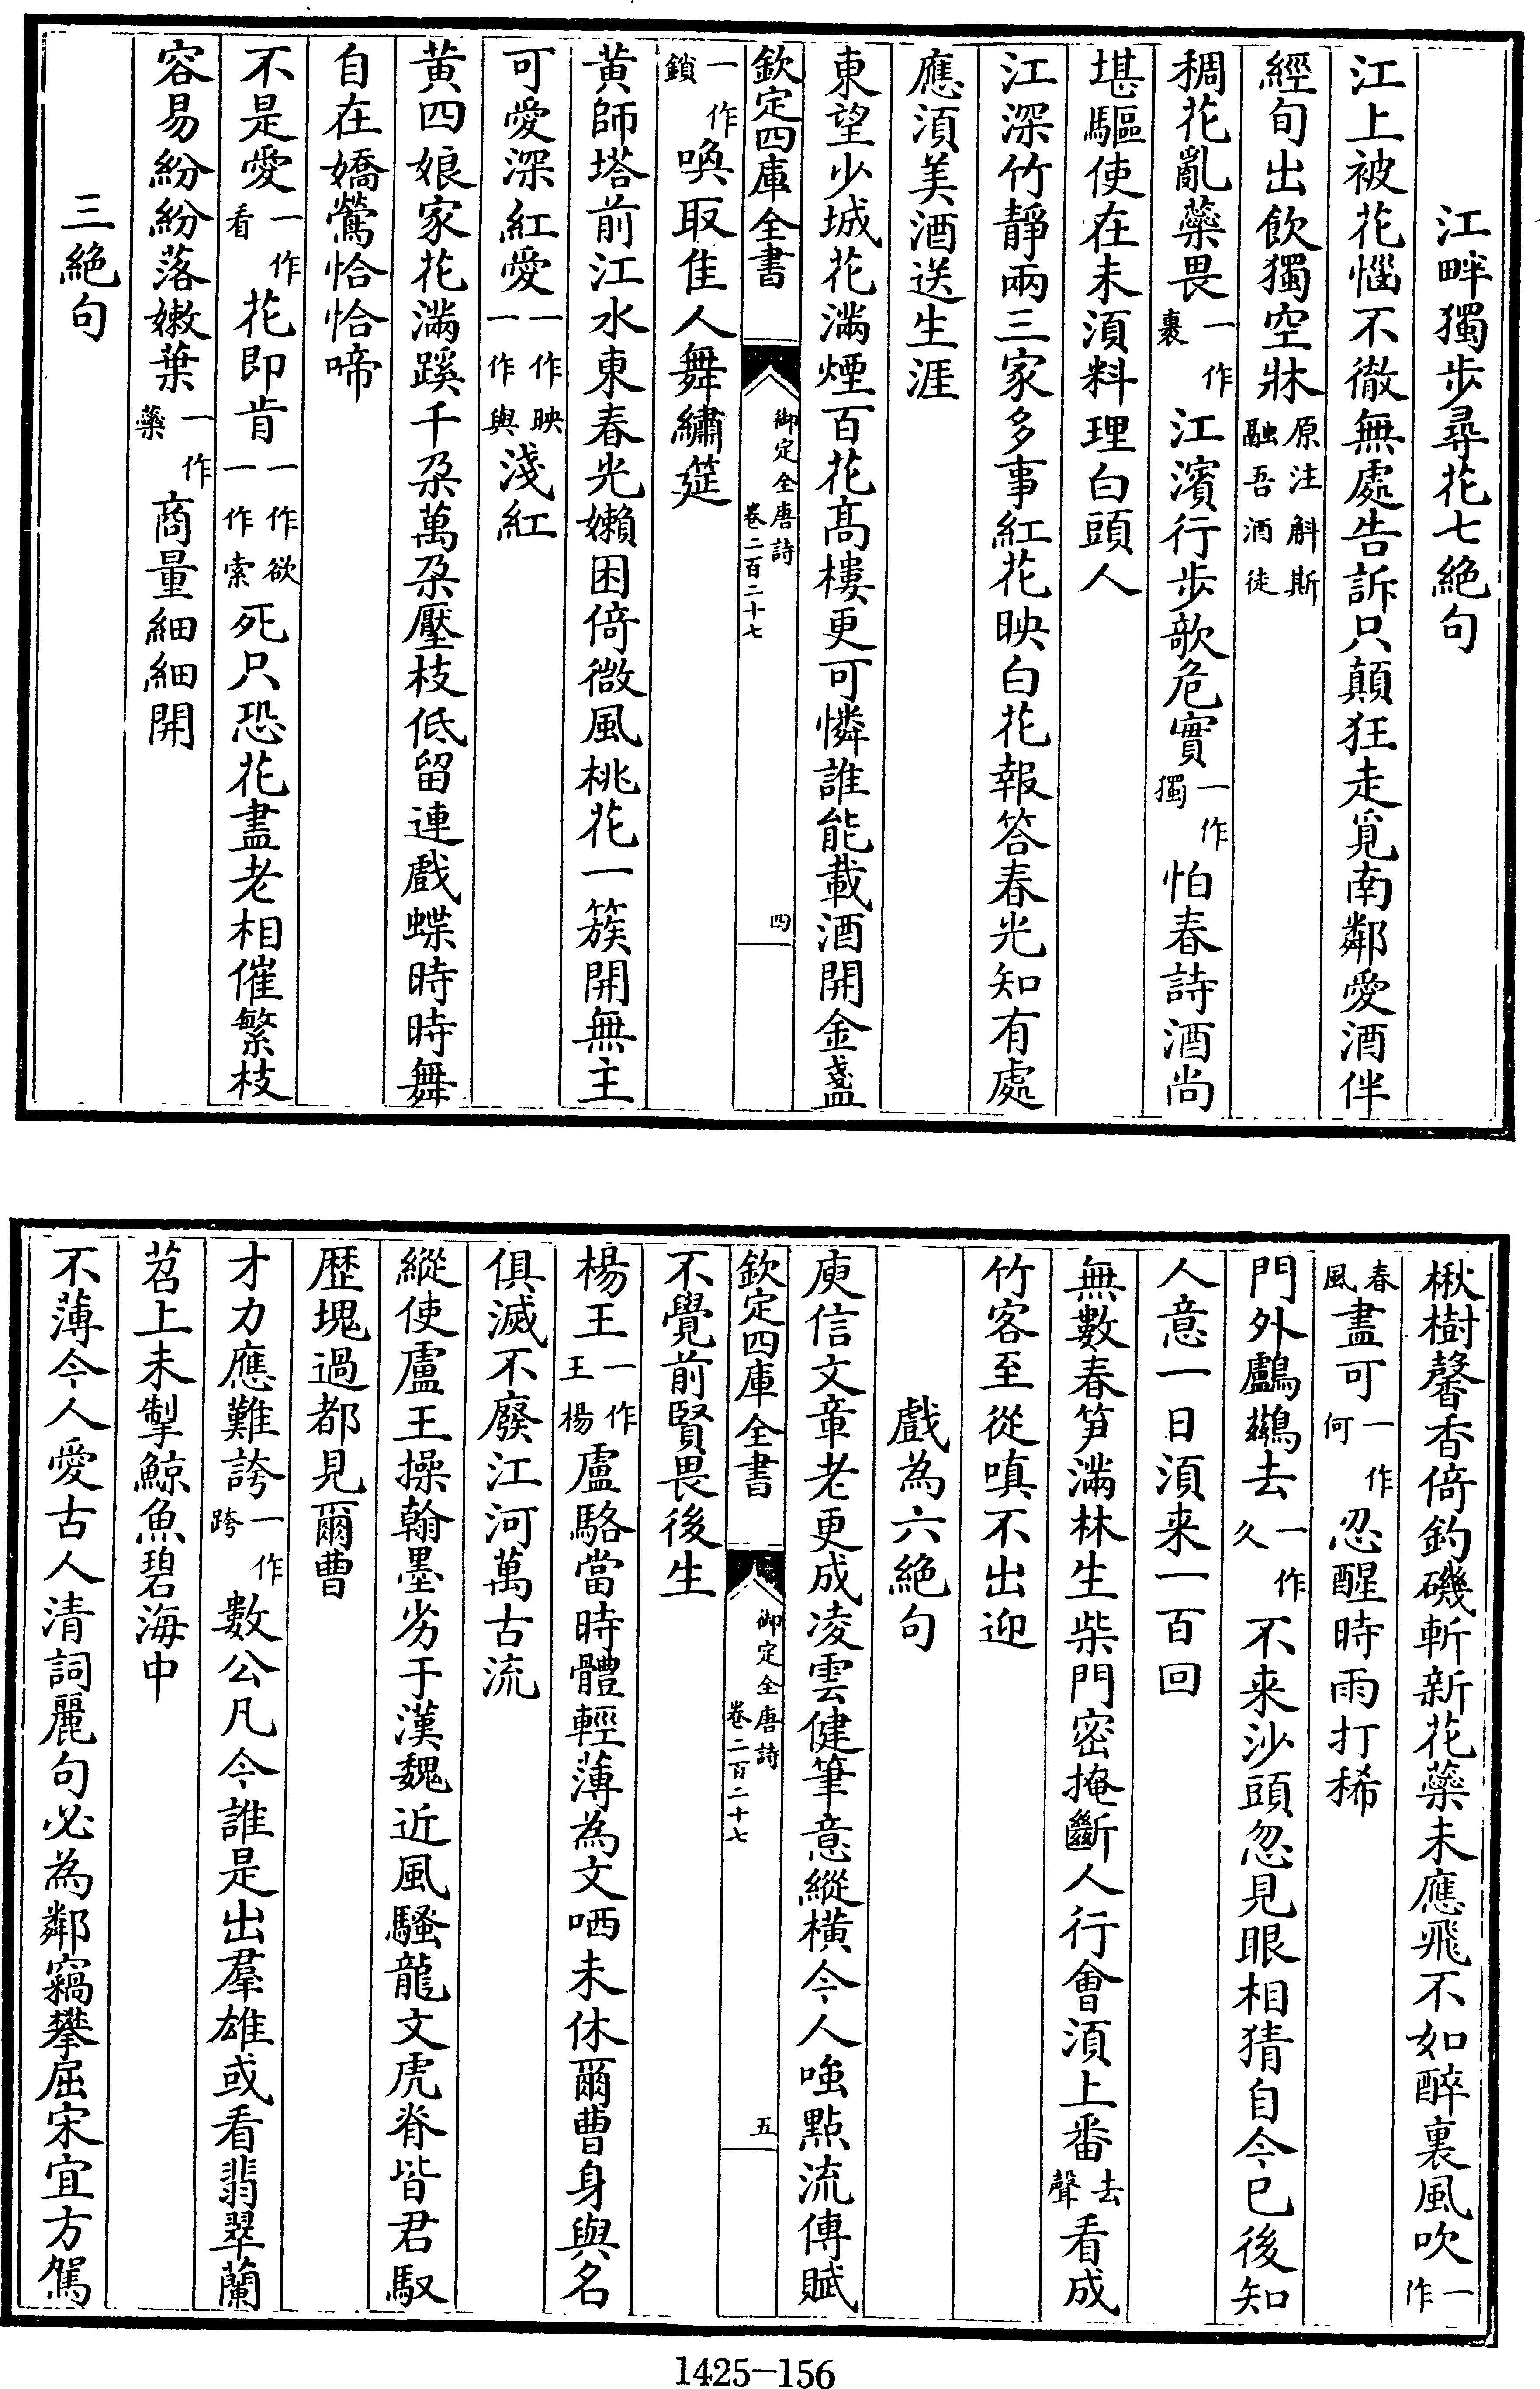 江畔獨步尋花七絶句
江上被花惱不徹無處告訴只顛狂走覓南鄰愛酒伴
經旬出飲獨空牀原注斛斯融吾酒徒
稠花亂蘂畏一作裹江濱行步欹危實一作獨怕春詩酒尚
堪驅使在未湏料理白頭人
江深竹靜兩三家多事紅花映白花報答春光知有處
應湏美酒送生涯
東望少城花滿煙百花髙樓更可憐誰能載酒開金盞
欽定四庫全書 御定全唐詩卷二百二十七 四
一作鎖喚取隹人舞繡筵
黄師塔前江水東春光嬾困倚微風桃花一簇開無主
可愛深紅愛一作映一作與淺紅
黄四娘家花滿蹊千朶萬朶壓枝低留連戲蝶時時舞
自在嬌鶯恰恰啼
不是愛一作看花即肯一作欲一作索死只恐花盡老相催繁枝
容易紛紛落嫩葉一作蘂商量細細開
三絶句
楸樹馨香倚釣磯斬新花蘂未應飛不如醉裏風吹一作
春風盡可一作何忍醒時雨打稀
門外鸕鷀去一作久不来沙頭忽見眼相猜自今已後知
人意一日湏来一百回
無數春笋滿林生柴門密掩斷人行會湏上番去聲看成
竹客至從嗔不出迎
戲為六絶句
庾信文章老更成凌雲健筆意縱橫今人嗤點流傳賦
欽定四庫全書 御定全唐詩卷二百二十七 五
不覺前賢畏後生
楊王一作王楊盧駱當時體輕薄為文哂未休爾曹身與名
俱滅不廢江河萬古流
縱使盧王操翰墨劣于漢魏近風騷龍文虎脊皆君馭
歴塊過都見爾曹
才力應難誇一作跨數公凡今誰是出羣雄或看翡翠蘭
苕上未掣鯨魚碧海中
不薄今人愛古人清詞麗句必為鄰竊攀屈宋宜方駕
1425-156